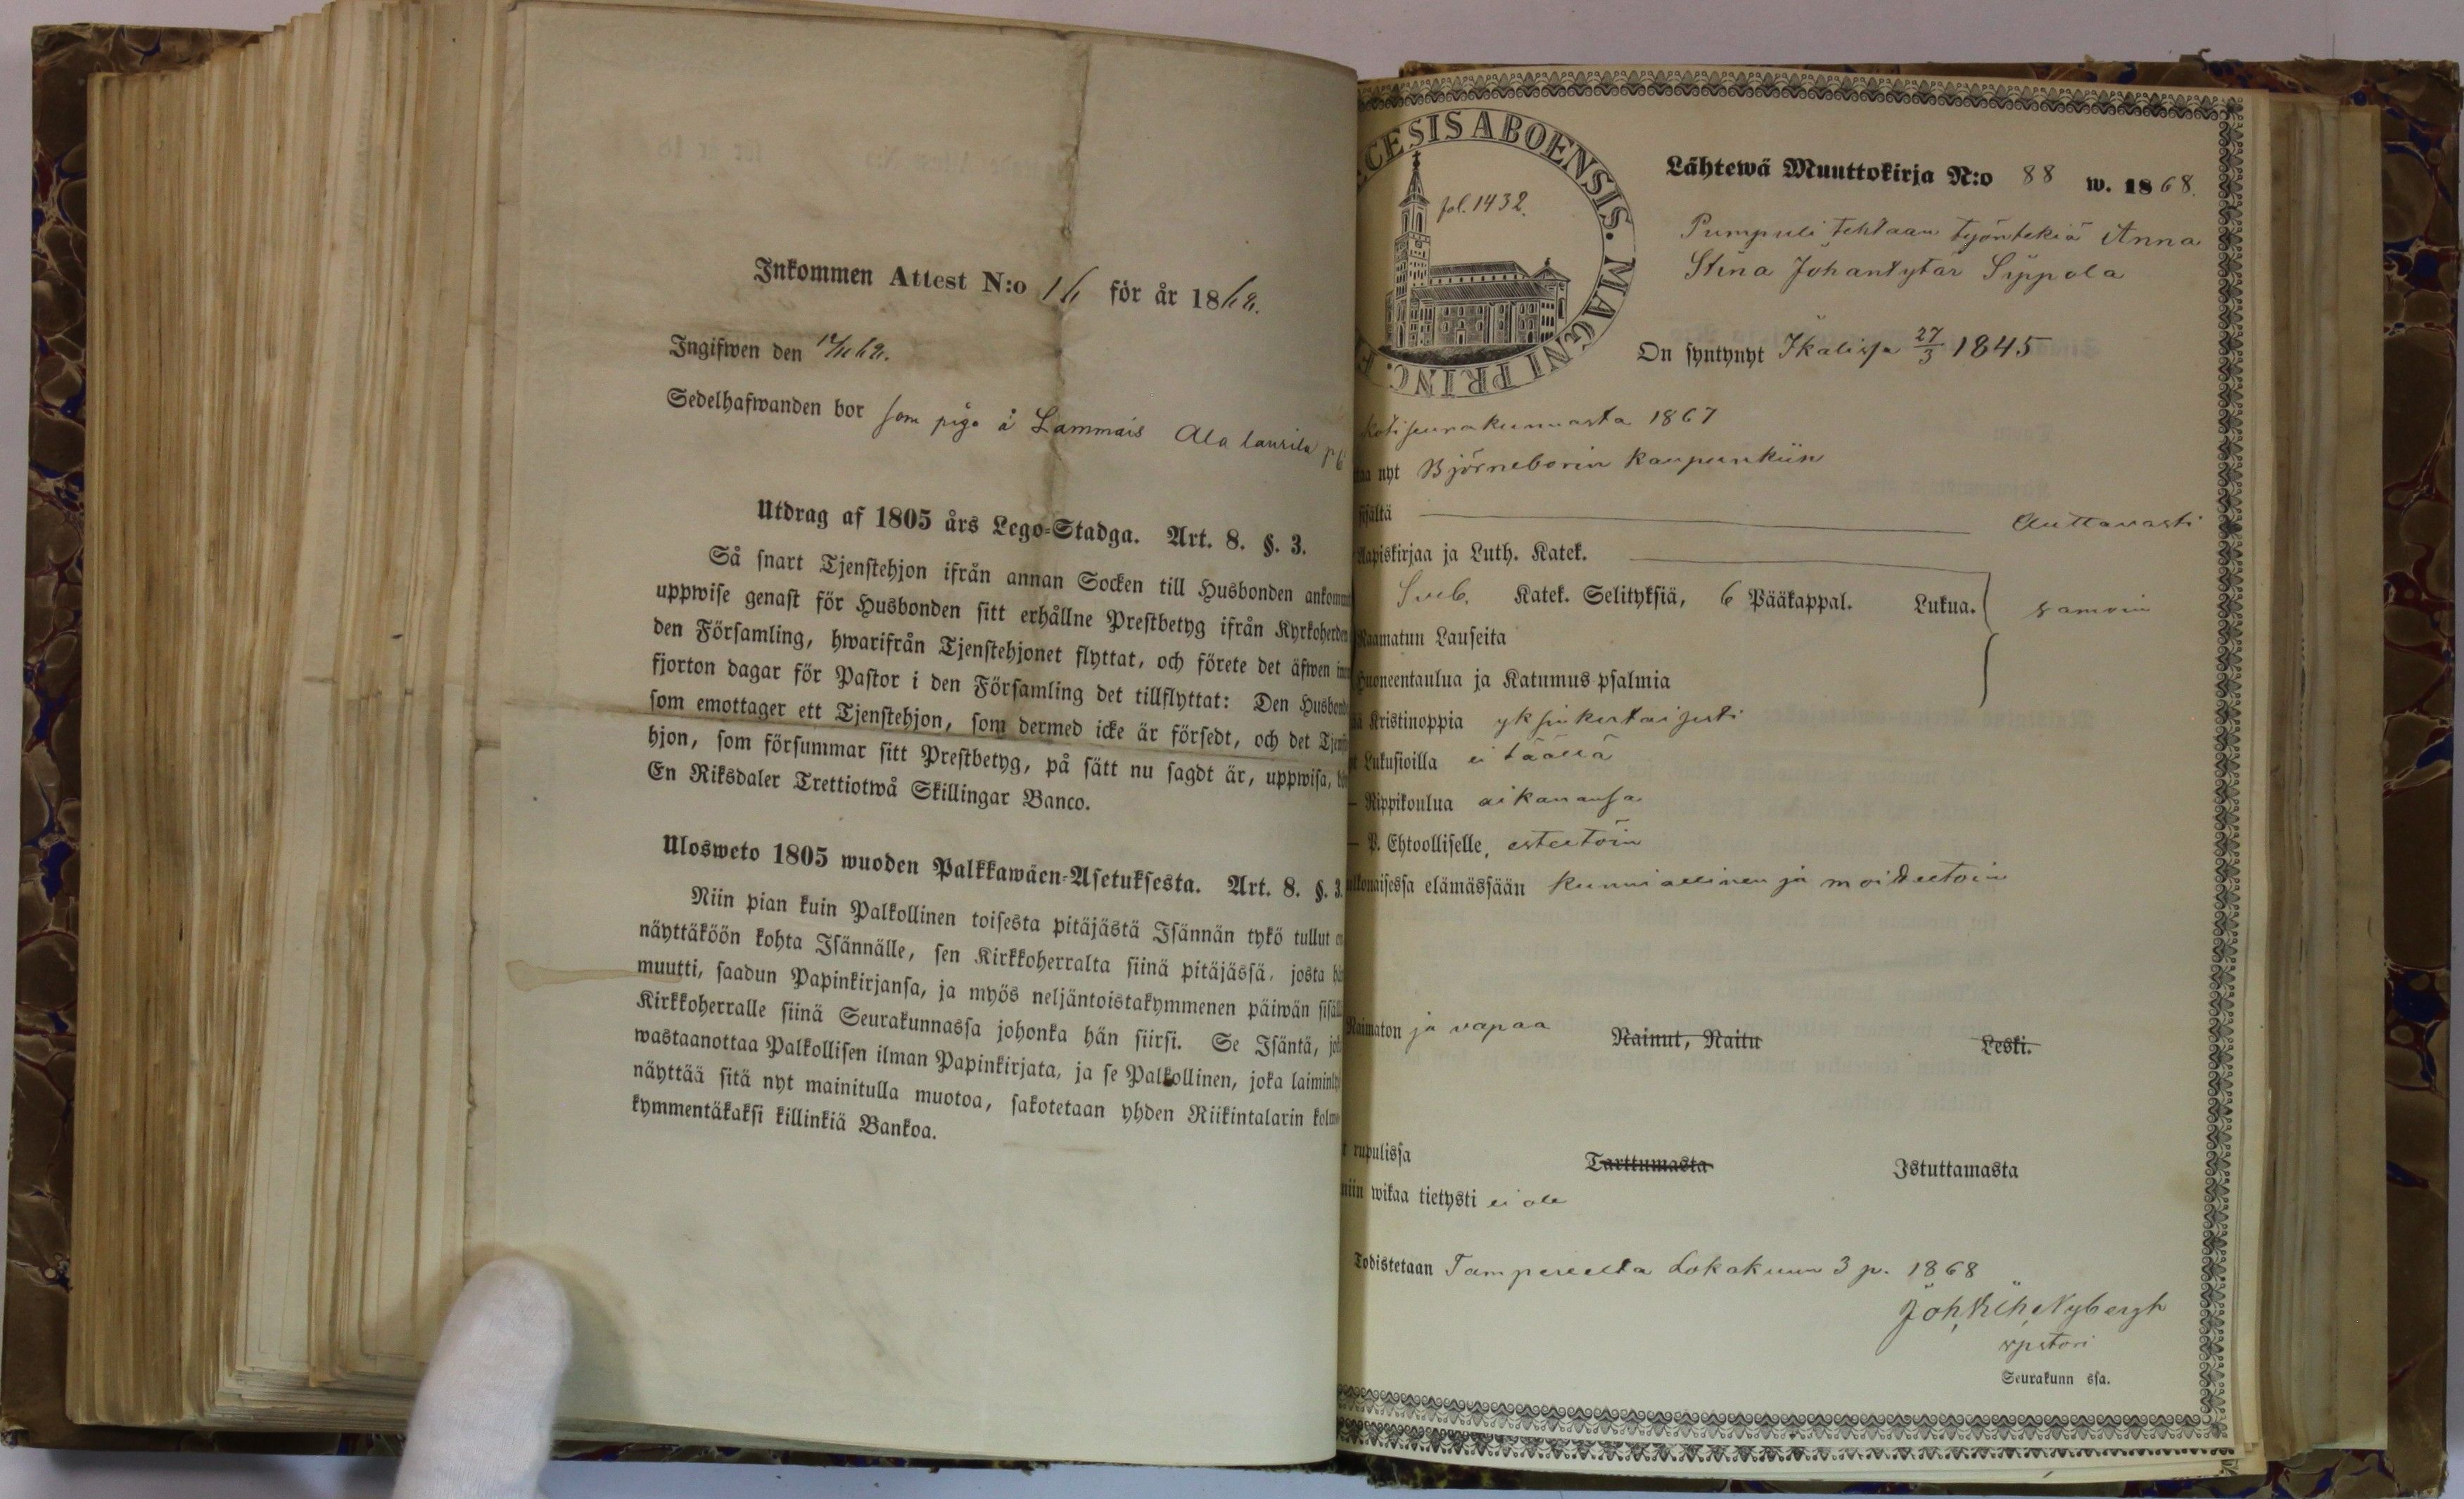 Inkommen Attest N:o 16 för år 1862.
Ingifwen den
Sedelhafwanden bor som piga å Lammais Ala laurila
Utdrag af 1805 års Lego-Stadga. Art. 8. §. 3.
Så snart Tjenstehjon ifrån annan Socken till Husbonden
uppwise genast för Husbonden sitt erhållne Prestbetyg ifrån Kyrkoherden
den Församling, hwarifrån Tjenstehjonet flyttat, och förete det äfwen
fjorton dagar för Pastor i den Församling det tillflyttat: Den
som emottager ett Tjenstehjon, som dermed icke är försedt, och det
hjon, som försummar sitt Prestbetyg, på sätt nu sagdt är, uppwisa,
En Riksdaler Trettiotwå Skillingar Banco.
Ulosweto 1805 wuoden Palkkawäen-Asetuksesta. Art. 8. §. 3.
Niin pian kuin Palkollinen toisesta pitäjästä Isännän tykö tullut
näyttäköön kohta Isännälle, sen Kirkkoherralta siinä pitäjässä, josta
muutti, saadun Papinkirjansa, ja myös neljäntoistakymmenen päiwän
Kirkkoherralle siinä Seurakunnassa johonka hän siirsi. Se Isäntä,
wastaanottaa Palkollisen ilman Papinkirjata, ja se Palkollinen, joka
näyttää sitä nyt mainitulla muotoa, sakotetaan yhden Riikintalarin
kymmentäkaksi killinkiä Bankoa.
CESIS ABOENSIS. MAGNI PRINC. F
fol. 1432.
Lähtewä Muuttokirja N:o 88 w. 1868.
Pumpuli tehtaan työntekiä Anna
Stina Johantytär Sippola
On syntynyt Ikalissa 27/3 1845
Kotiseurakunnasta 1867
nyt Björneborin kaupunkiin
sisältä auttawasti
Aapiskirjaa ja Luth. Katek.
Sveb. Katek. Selityksiä, 6 Pääkappal. Lukua. samoin
Raamatun Lauseita
Huoneentaulua ja Katumus psalmia
Kristinoppia yksinkertaisesti
Lukusioilla ei täällä
– Rippikoulua aikanansa
– P. Ehtoolliselle, esteetöin
elämässään kunniallinen ja moitteetoin
Naimaton ja vapaa Nainut, Naitu Leski.
rupulissa Tarttumasta Istuttamasta
niin wikaa tietysti ei ole
Todistetaan Tampereelta Lokakuun 3 p. 1868
Joh. Nybergh
Seurakunn ssa.